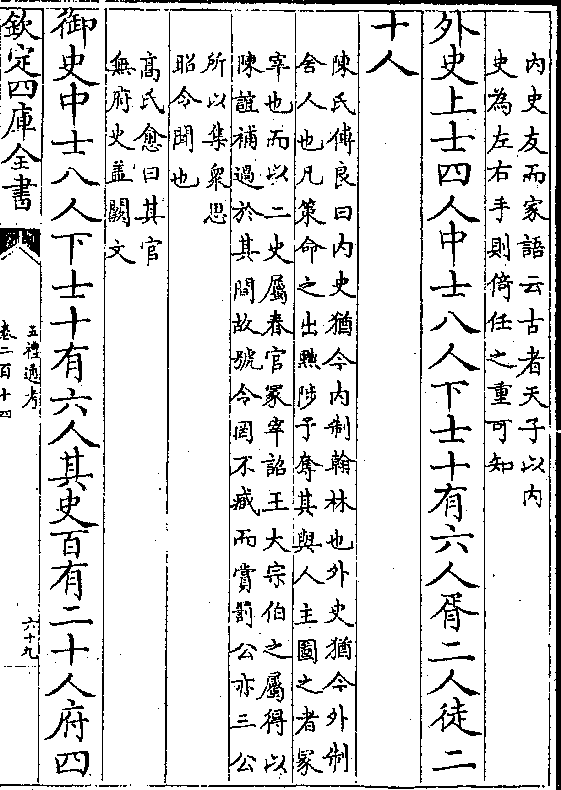 內史友而家語云古者天子以內
史為左右手則倚任之重可知
外史上士四人中士八人下士十有六人胥二人徒二
十人
陳氏傅良曰內史猶今內制翰林也外史猶今外制
舍人也凡策命之出黜陟予奪其與人主圖之者冢
宰也而以二史屬春官冢宰詔王大宗伯之屬得以
陳誼補過於其間故號令罔不臧而賞罰公亦三公
所以集衆思
昭令聞也
髙氏愈曰其官
無府史葢闕文
御史中士八人下士十有六人其史百有二十人府四
欽定四庫全書
五禮通考
卷二百十四
六十九